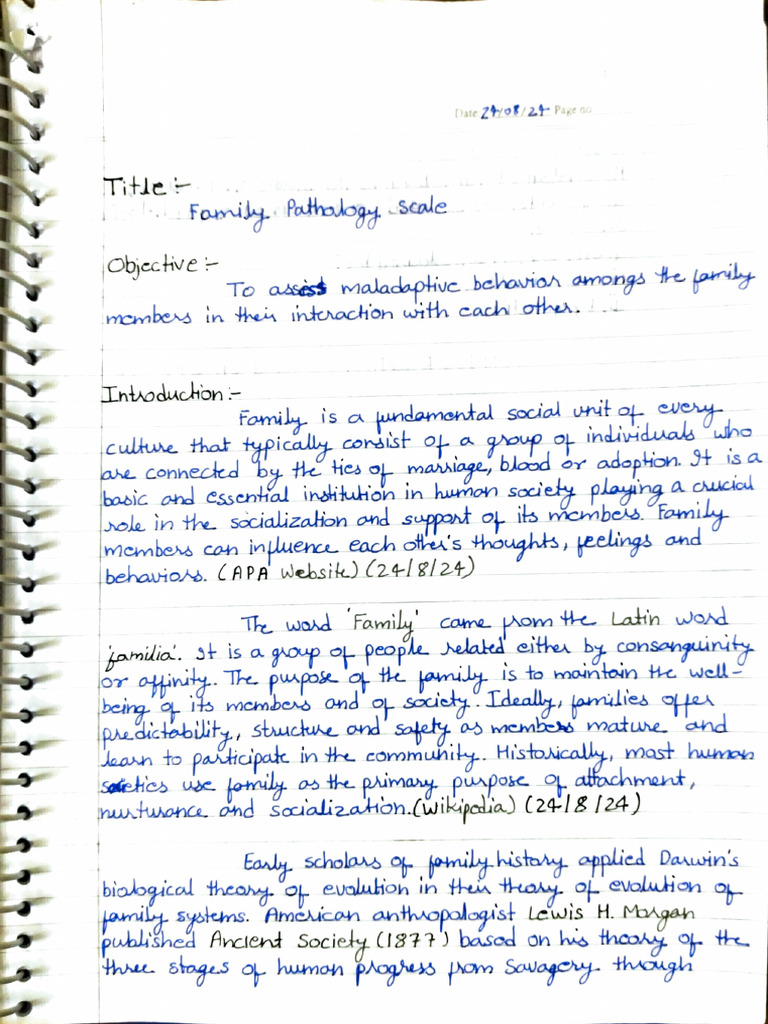 Date 24/08/24 Page no
Title :-
Family Pathology Scale
Objective :-
To assess maladaptive behavior amongs the family
members in their interaction with each other.
Introduction :-
Family is a fundamental social unit of every
culture that typically consist of a group of individuals who
are connected by the ties of marriage, blood or adoption. It is a
basic and essential institution in human society playing a crucial
role in the socialization and support of its members. Family
members can influence each other's thoughts, feelings and
behaviors. (APA Website) (24/8/24)
The word 'Family' came from the Latin word
'familia'. It is a group of people related either by consanguinity
or affinity. The purpose of the family is to maintain the well-
being of its members and of society. Ideally, families offer
predictability, structure and safety as members mature and
learn to participate in the community. Historically, most human
societies use family as the primary purpose of attachment,
nurturance and socialization. (Wikipedia) (24/8/24)
Early scholars of family history applied Darwin's
biological theory of evolution in their theory of evolution of
family systems. American anthropologist Lewis H. Morgan
published Ancient Society (1877) based on his theory of the
three stages of human progress from Savagery through